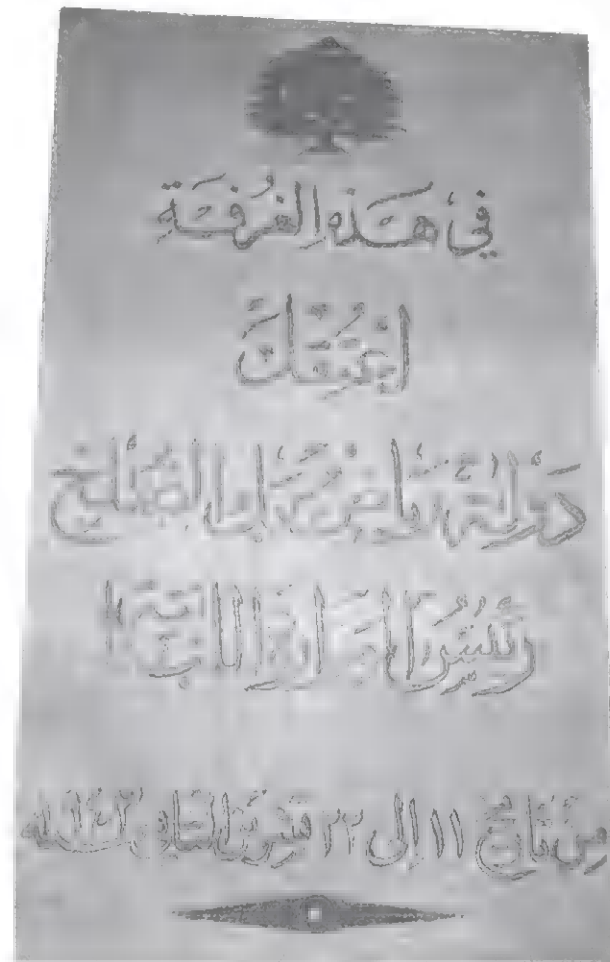 في هَذِهِ الغُرفَةِ
اعتُقِلَ
دولة رياض بك الصلح
رئيس الوزارة اللبنانية
من تاريخ ١١ الى ٢٢ تشرين الثاني